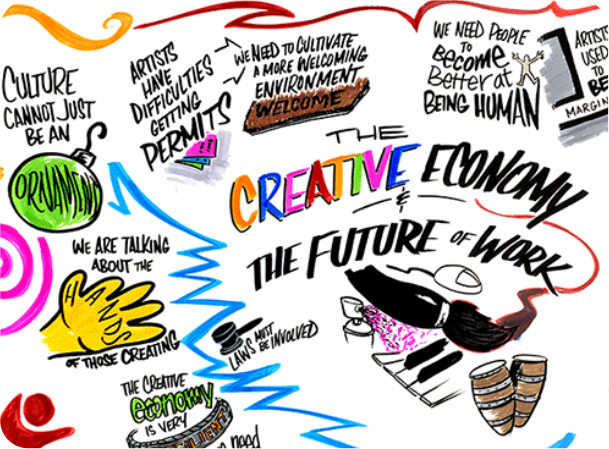 CULTURE
CANNOT JUST
BE AN
ORNAMENT
ARTISTS
HAVE
DIFFICULTIES
GETTING
PERMITS
WE NEED TO CULTIVATE
A MORE WELCOMING
ENVIRONMENT
WELCOME
WE NEED PEOPLE
TO
BECOME
BETTER AT
BEING HUMAN
ARTISTS
USED
TO
BE
MARGIN
THE
CREATIVE ECONOMY
&
THE FUTURE OF WORK
WE ARE TALKING
ABOUT THE
HANDS
OF THOSE CREATING
LAWS MUST
BE INVOLVED
THE CREATIVE
economy
IS VERY
SILIENT
need